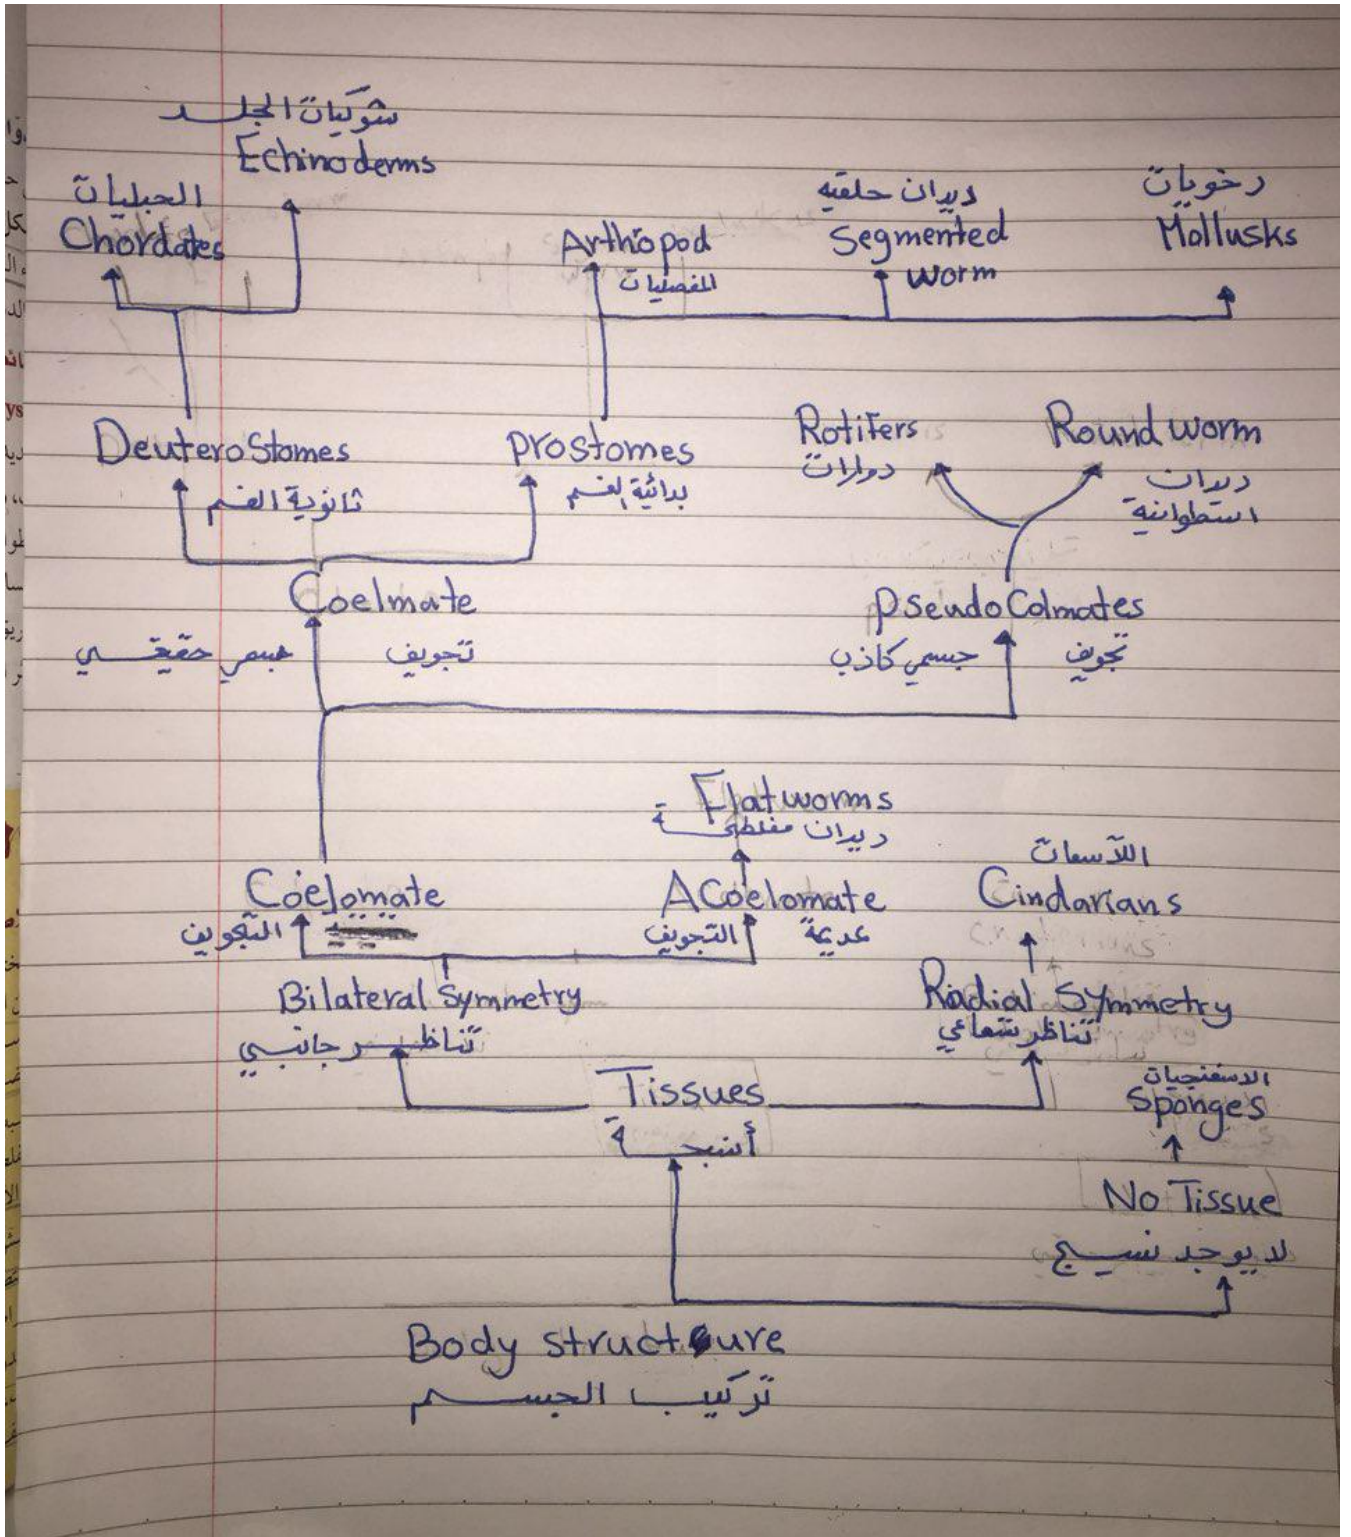 شوكيات الجلد
Echinoderms
الحبليات
Chordates
Arthopod
المفصليات
ديدان حلقيه
Segmented
worm
رخويات
Mollusks
DeuteroStomes
ثانوية الفم
prostomes
بدائية الفم
Rotifers
دوارات
Round worm
ديدان
اسطوانية
Coelmate
تجويف جسمي حقيقي
pseudoColmates
تجويف جسمي كاذب
Flatworms
ديدان مفلطحة
Coelomate
التجويف
ACoelomate
عديمة التجويف
اللآسعات
Cindarians
Bilateral Symmetry
تناظر جانبي
Radial Symmetry
تناظر شعاعي
Tissues
أنسجة
الاسفنجيات
Sponges
No Tissue
لا يوجد نسيج
Body structure
تركيب الجسم